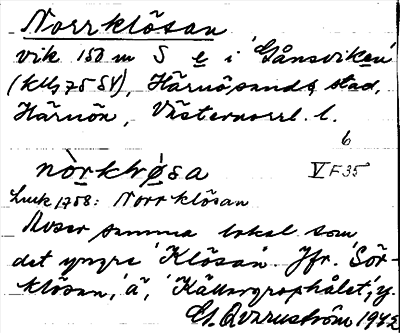 Norrklösan
vik 150 m S e i 'Gånsviken'
(kbl 75 SV), Härnösands stad,
Härnön, Västernorrl. l.
6
nòrkḷø̀sa V F 35
1758: Norrklösan
Avser samma lokal som
det yngre 'Klösan' Jfr. 'Sör-
klösan', a, 'Källargrophålet', y.
Qvarnström 1942